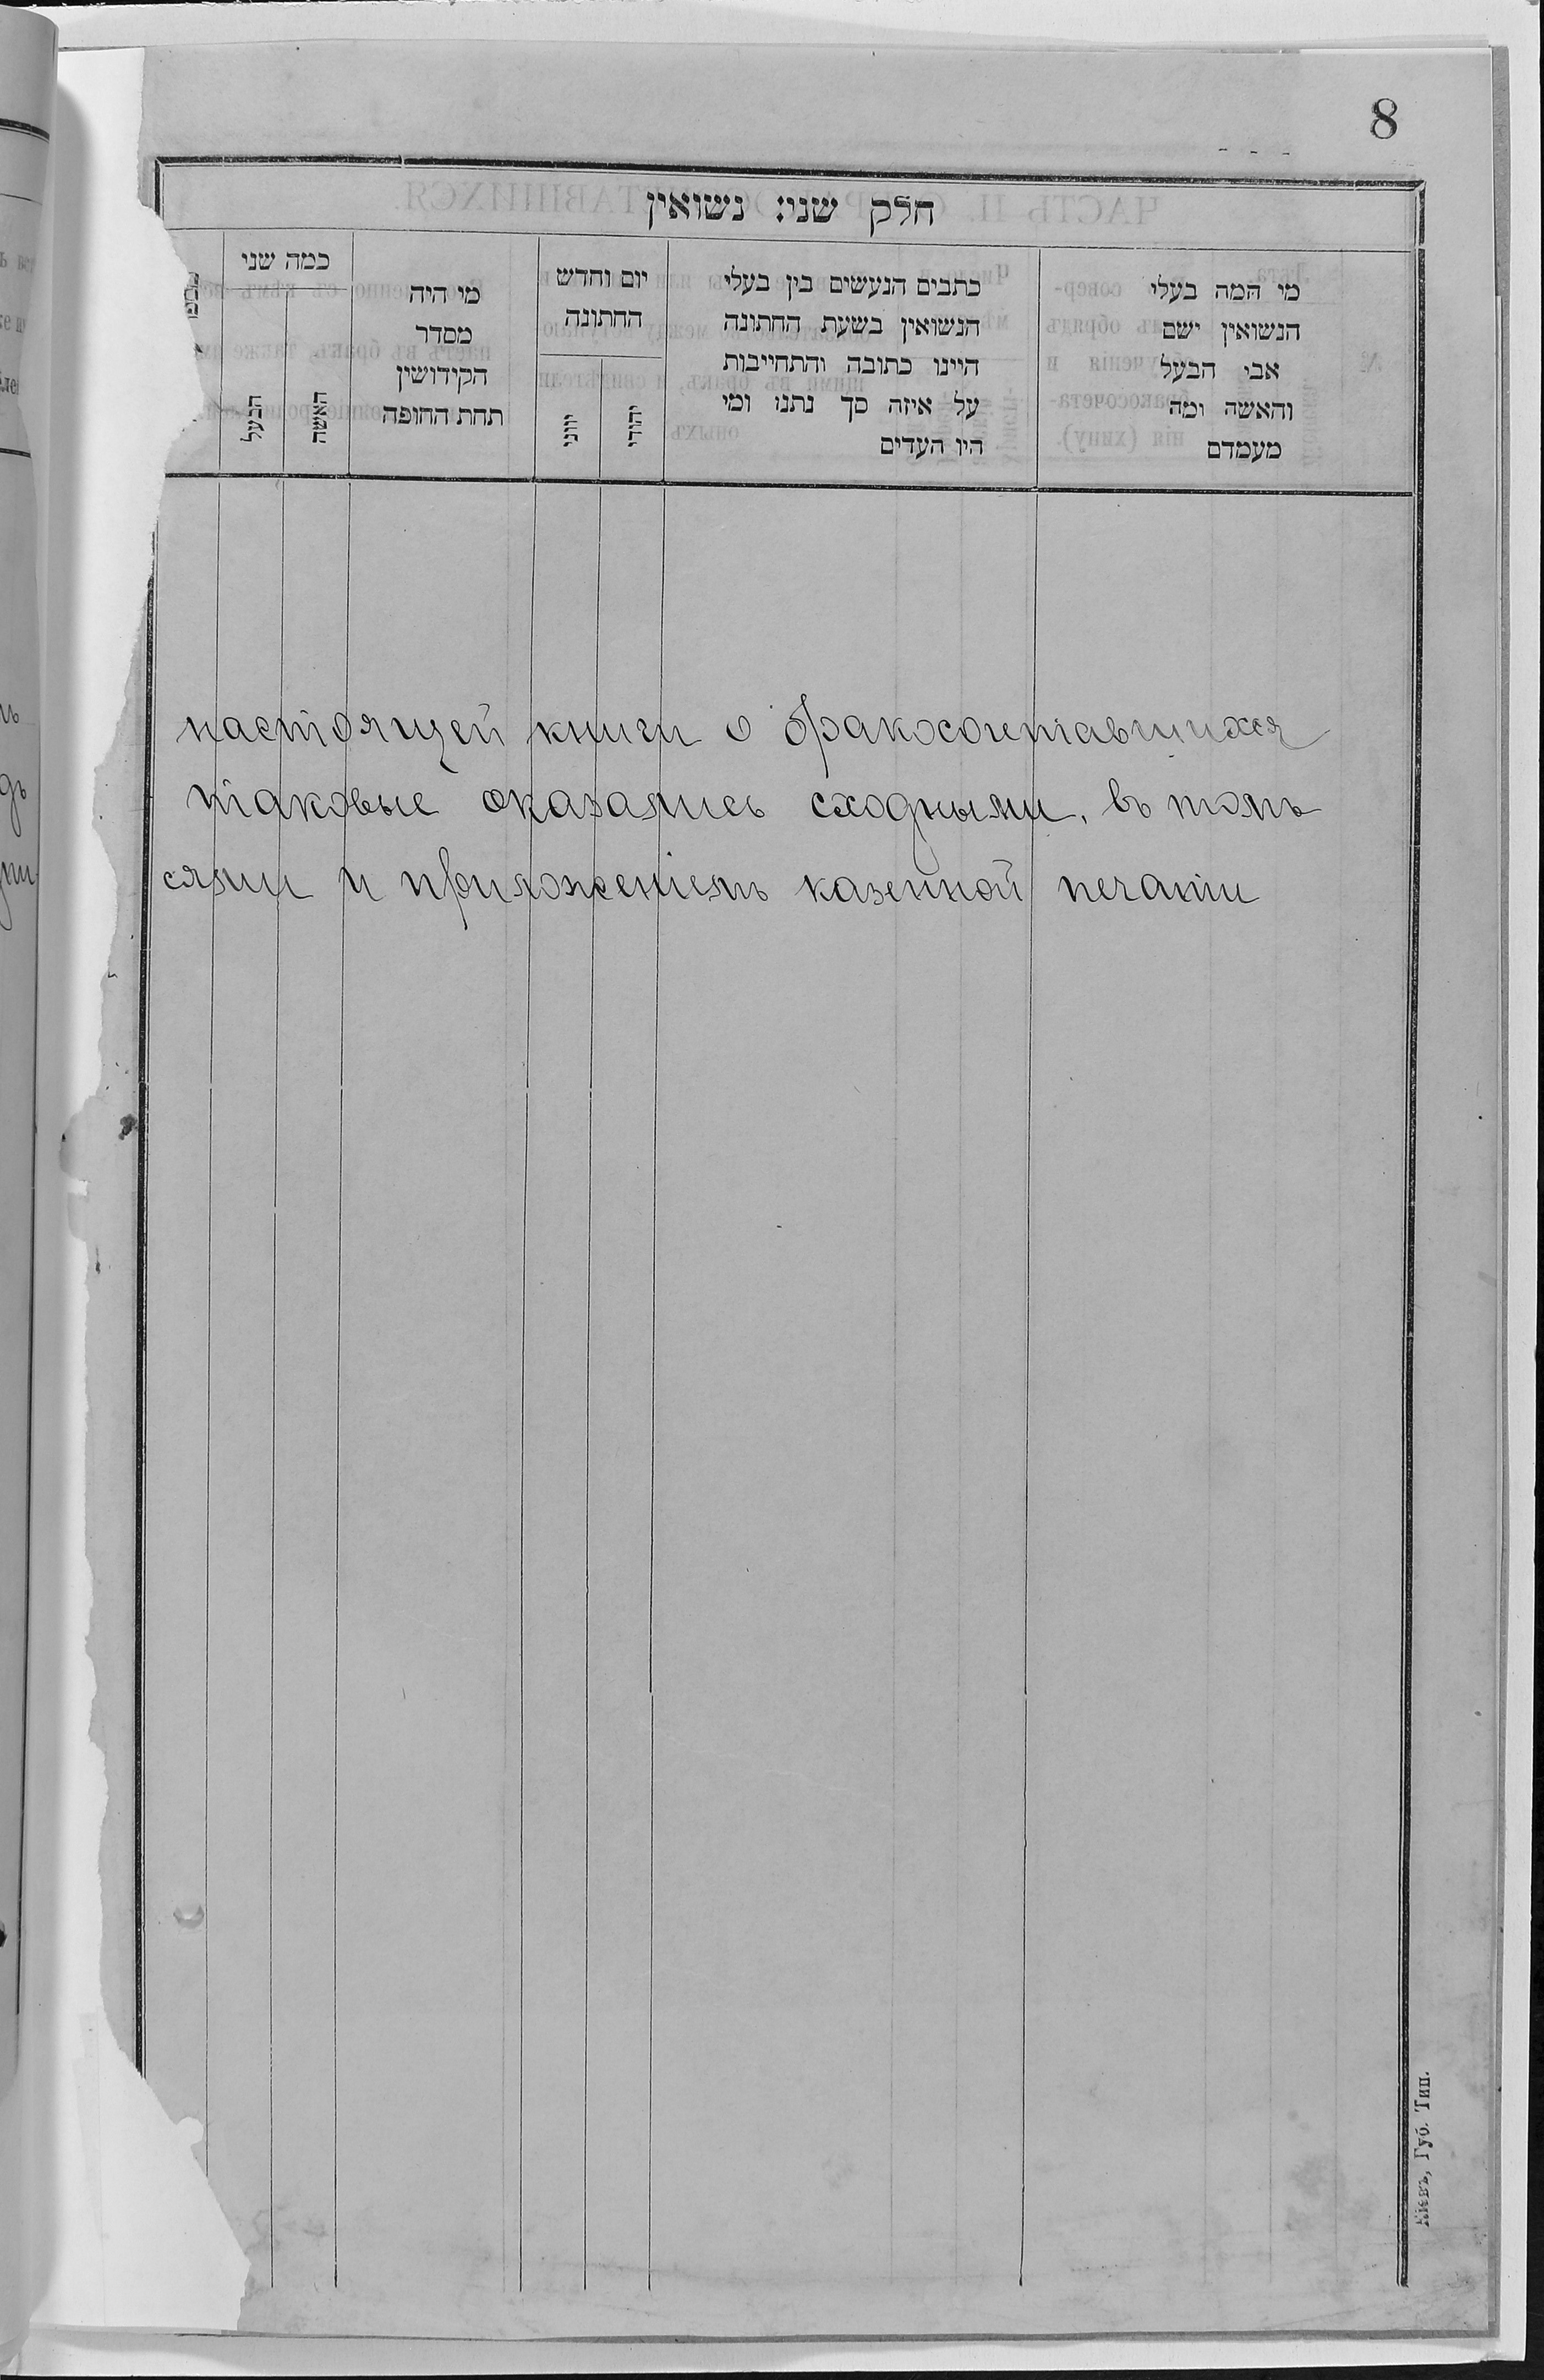 8
חלק שני: נשואין
מי המה בעלי
הנשואין ושם
אבי הבעל
והאשה ומה
מעמדם
כתבים הנעשים בין בעלי
הנשואין בשעת החתונה
היינו כתובה והתחייבות
על איזה סך נתנו ומי
היו העדים
יום וחדש
החתונה
יהודי
יווני
מי היה
מסדר
הקידושין
תחת החופה
כמה שני
האשה
הבעל
настоящей книги о бракосочетавшихся
таковые оказались сходными, въ томъ
сями и приложеніемъ казенной печати
Кіевъ, Губ. Тип.